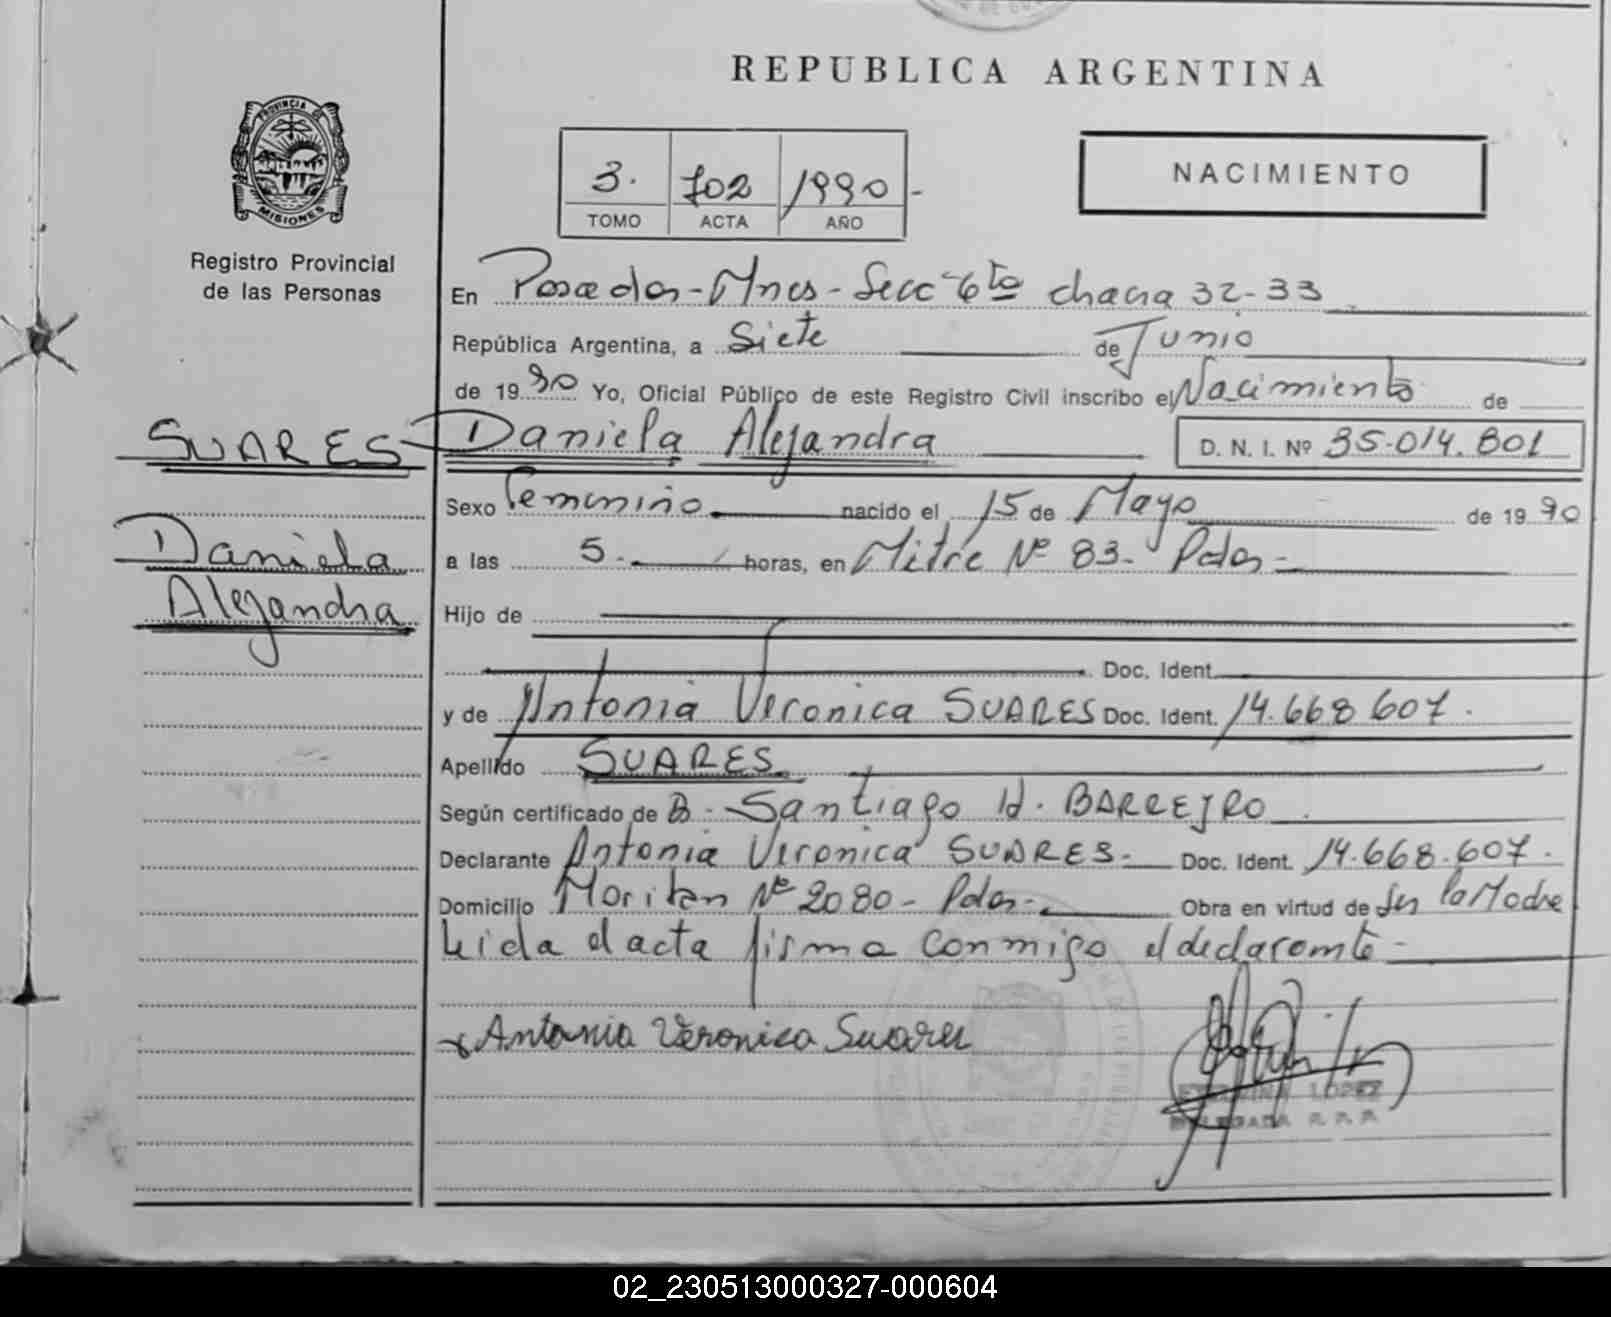 REPUBLICA ARGENTINA
PROVINCIA DE
MISIONES
Registro Provincial
de las Personas
3. 702 1990-
TOMO ACTA AÑO
NACIMIENTO
En Posadas-Mnes-Secc 6ta chacra 32-33
República Argentina, a Siete de Junio
de 1990 Yo, Oficial Público de este Registro Civil inscribo el Nacimiento de
SUARES Daniela Alejandra D. N. I. Nº 35.014.801
Sexo Femenino nacido el 15 de Mayo de 1990
Daniela
a las 5. horas, en Mitre Nº 83- Pdas-
Alejandra
Hijo de
Doc. Ident.
y de Antonia Veronica SUARES Doc. Ident. 14.668.607.
Apellido SUARES
Según certificado de Santiago H. BARREYRO
Declarante Antonia Veronica SUARES- Doc. Ident. 14.668.607.
Domicilio Nº 2080- Pdas- Obra en virtud de Ser la Madre
Leida el acta firma conmigo el declarante-
x Antonia Veronica Suares
LOPEZ
DELEGADA R.P.P.
02_230513000327-000604